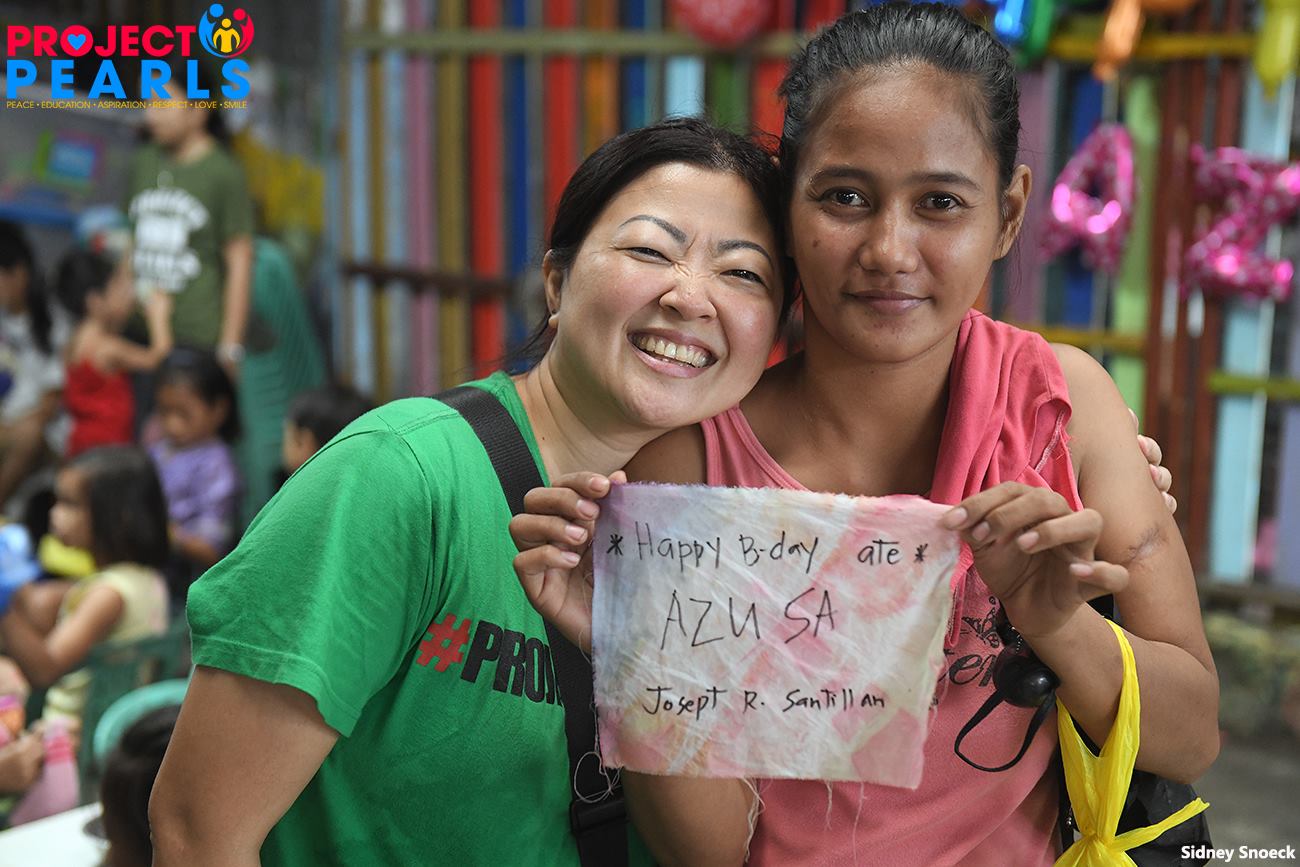 PROJECT
PEARLS
PEACE • EDUCATION • ASPIRATION • RESPECT • LOVE • SMILE
* Happy B-day ate *
AZUSA
Josept R. Santillan
#PROJ
42
Sidney Snoeck